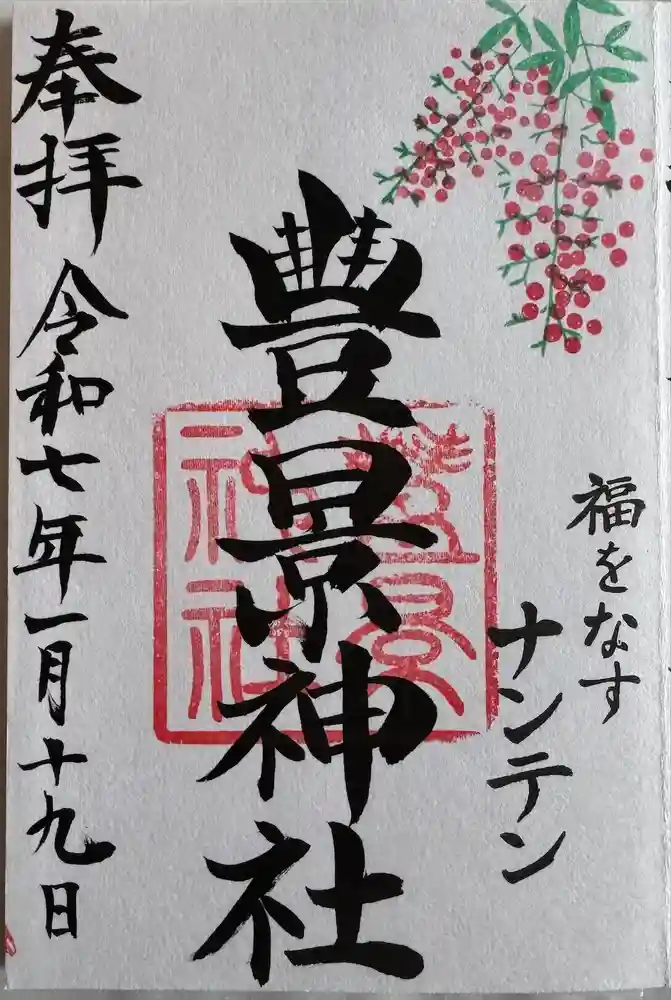 福をなす
ナンテン
豊景神社
豊景
神社
奉拝 令和七年一月十九日